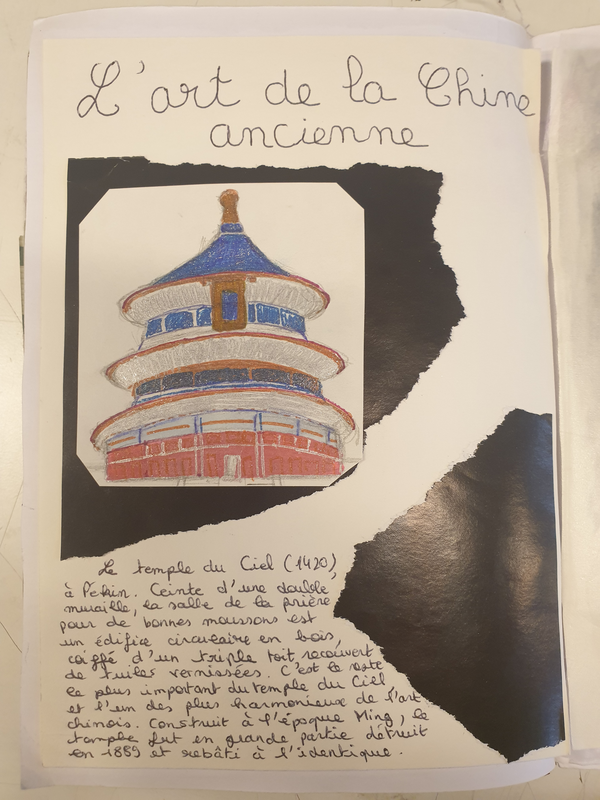 L'art de la Chine
ancienne
Le temple du Ciel (1420),
à Pékin. Ceinte d'une double
muraille, la salle de la prière
pour de bonnes moussons est
un édifice circulaire en bois,
coiffé d'un triple toit recouvert
de tuiles vernissées. C'est le reste
le plus important du temple du Ciel
et l'un des plus harmonieux de l'art
chinois. Construit à l'époque Ming, le
temple fut en grande partie détruit
en 1889 et rebâti à l'identique.